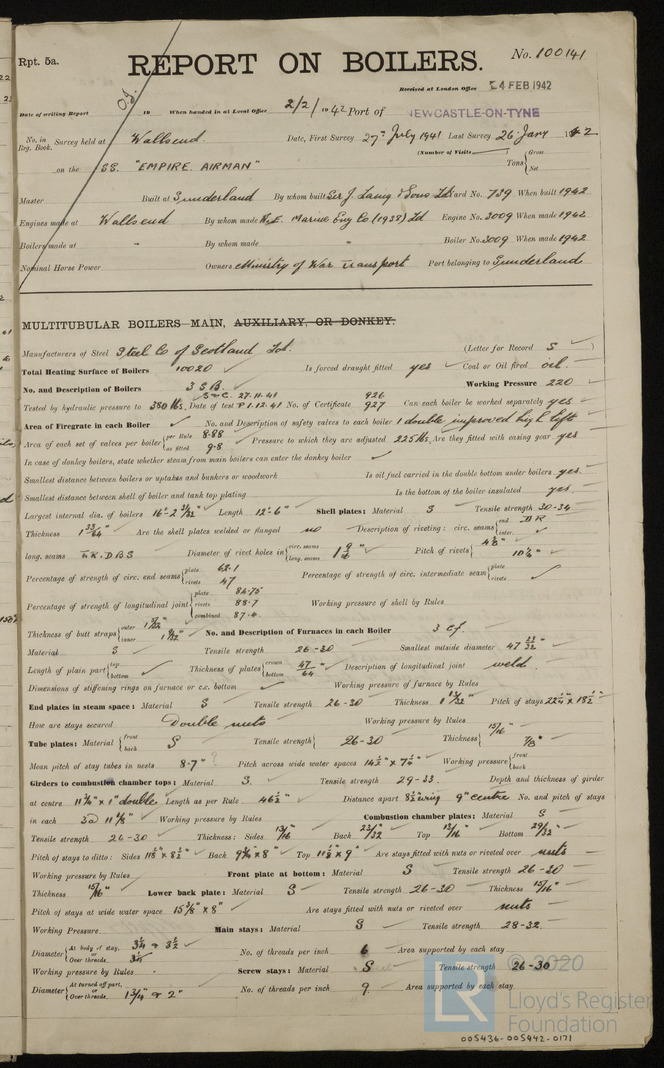 Rpt. 5a.
REPORT ON BOILERS.
No. 100141
Received at London Office 4 FEB 1942
Date of writing Report 19 When handed in at Local Office 2/2/1942 Port of NEWCASTLE-ON-TYNE
No. in Reg. Book. Survey held at Wallsend. Date, First Survey 27th July 1941 Last Survey 26 Jany 1942
(Number of Visits )
on the SS. "EMPIRE AIRMAN" Tons { Gross Net
Master Built at Sunderland By whom built Sir J. Laing & Sons Ld Yard No. 739 When built 1942
Engines made at Wallsend By whom made N.E. Marine Eng Co (1938) Ld Engine No. 3009 When made 1942
Boilers made at " By whom made " Boiler No. 3009 When made 1942
Nominal Horse Power Owners Ministry of War Transport Port belonging to Sunderland
MULTITUBULAR BOILERS MAIN, AUXILIARY, OR DONKEY.
Manufacturers of Steel Steel Co of Scotland Ltd. (Letter for Record S )
Total Heating Surface of Boilers 10020 Is forced draught fitted yes Coal or Oil fired oil.
No. and Description of Boilers 3 S.B. Working Pressure 220
Tested by hydraulic pressure to 380 lbs. Date of test 27.11.41 1.12.41 No. of Certificate 926 927 Can each boiler be worked separately yes
Area of Firegrate in each Boiler No. and Description of safety valves to each boiler 1 double improved high lift
Area of each set of valves per boiler { per Rule 8.88 as fitted 9.8 Pressure to which they are adjusted 225 lbs. Are they fitted with easing gear yes
In case of donkey boilers, state whether steam from main boilers can enter the donkey boiler
Smallest distance between boilers or uptakes and bunkers or woodwork Is oil fuel carried in the double bottom under boilers yes.
Smallest distance between shell of boiler and tank top plating Is the bottom of the boiler insulated yes.
Largest internal dia. of boilers 16'-2 31/32" Length 12'-6" Shell plates: Material S Tensile strength 30-34
Thickness 1 33/64" Are the shell plates welded or flanged no Description of riveting: circ. seams { end DR inter.
long. seams T.R. D.B.S Diameter of rivet holes in { circ. seams long. seams 1 9/16" Pitch of rivets { 4 1/8" 10 7/8"
Percentage of strength of circ. end seams { plate 62.1 rivets 47 Percentage of strength of circ. intermediate seam { plate rivets
Percentage of strength of longitudinal joint { plate 84.75 rivets 88.7 combined 87.4 Working pressure of shell by Rules
Thickness of butt straps { outer 1 5/32" inner 1 9/32" No. and Description of Furnaces in each Boiler 3 cf.
Material S Tensile strength 26-30 Smallest outside diameter 47 23/32"
Length of plain part { top bottom Thickness of plates { crown bottom 47/64" Description of longitudinal joint weld.
Dimensions of stiffening rings on furnace or c.c. bottom Working pressure of furnace by Rules
End plates in steam space: Material S Tensile strength 26-30 Thickness 1 13/32" Pitch of stays 22 1/4" x 18 1/2"
How are stays secured Double nuts Working pressure by Rules
Tube plates: Material { front back S Tensile strength { 26-30 Thickness { 15/16" 7/8"
Mean pitch of stay tubes in nests 8.7" ? Pitch across wide water spaces 14 1/2" x 7 1/4" Working pressure { front back
Girders to combustion chamber tops: Material S. Tensile strength 29-33. Depth and thickness of girder
at centre 11 3/4" x 1" double Length as per Rule 46 1/2" Distance apart 8 1/2" wing 9" centre No. and pitch of stays
in each 3 @ 11 1/8" Working pressure by Rules Combustion chamber plates: Material S
Tensile strength 26-30 Thickness: Sides 13/16" Back 23/32" Top 13/16" Bottom 29/32"
Pitch of stays to ditto: Sides 11 1/8" x 8 1/2" Back 9 3/4" x 8" Top 11 1/8" x 9" Are stays fitted with nuts or riveted over nuts
Working pressure by Rules Front plate at bottom: Material S Tensile strength 26-30
Thickness 15/16" Lower back plate: Material S Tensile strength 26-30 Thickness 15/16"
Pitch of stays at wide water space 15 3/8" x 8" Are stays fitted with nuts or riveted over nuts
Working Pressure Main stays: Material S Tensile strength 28-32.
Diameter { At body of stay, or Over threads. 3 1/4 & 3 1/2 No. of threads per inch 6 Area supported by each stay
Working pressure by Rules Screw stays: Material S Tensile strength 26-30
Diameter { At turned off part, or Over threads. 1 3/4" & 2" No. of threads per inch 9. Area supported by each stay
© 2020
LR Lloyd's Register Foundation
005436-005442-0171